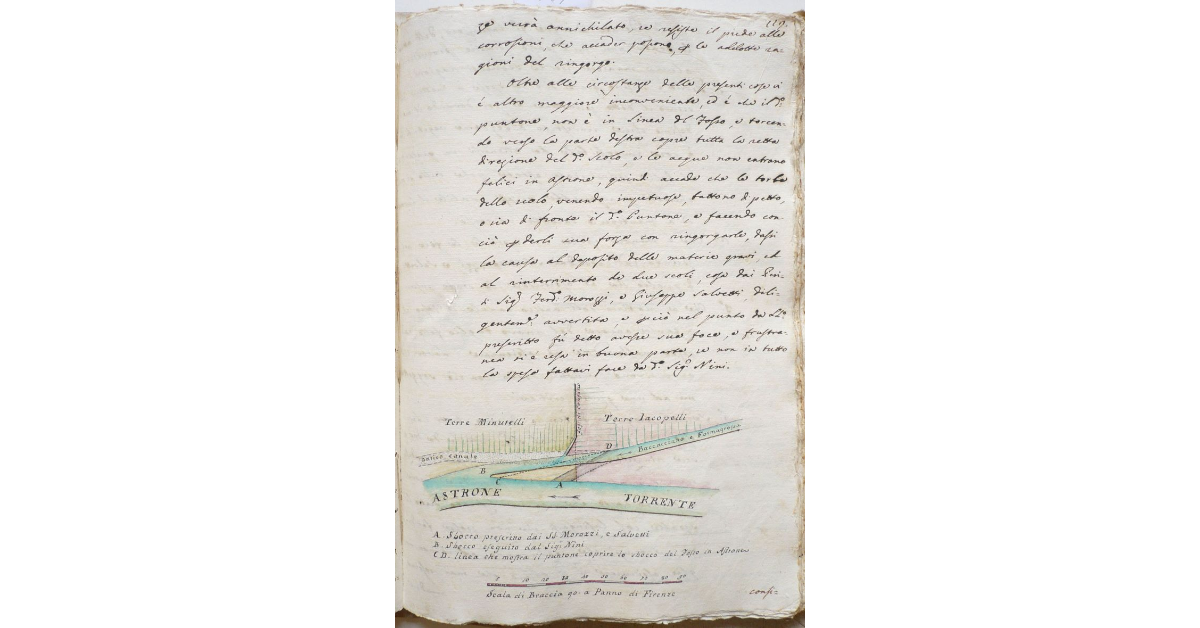 119
verrà annichilato, se resiste il piede alle
corrosioni, che accader possono, le addotte ra-
gioni del ringorgo.
Oltre alle circostanze delle presenti cose vi
è altro maggiore inconveniente, ed è che il d.º
puntone, non è in linea del Fosso, e torcen-
do verso la parte destra copre tutta la retta
direzione del d.º Scolo, e le acque non entrano
felici in Astrone, quindi accade che le torbe
dello scolo, venendo impetuose, battono di petto,
o sia di fronte il d.º Puntone, e facendo con
ciò perderli sua forza con ringorgarle, dassi
la causa al deposito delle materie gravi, ed
al rinterrimento de due scoli, cosa dai Peri-
ti Sig.ri Ferd.º Morozzi, e Giuseppe Salvetti dili-
gentem.e avvertita, e perciò nel punto da
prescritto fù detto avesse sua foce, e frustra-
nea si è resa in buona parte, se non in tutto
la spesa fattavi fare da d.º Sig.r Nini.
Terre Minutelli
Terre Iacopelli
D
Baccacciano e Fornagrossa
Antico canale
B
C
A
ASTRONE
TORRENTE
A Sbocco prescritto dai SS. Morozzi, e Salvetti
B Sbocco eseguito dal Sig.r Nini
C D. linea che mostra il puntone coprire lo sbocco del Fosso in Astrone
10 20 30 40 50 60 70 80 90
Scala di Braccia 90: a Panno di Firenze
consi=